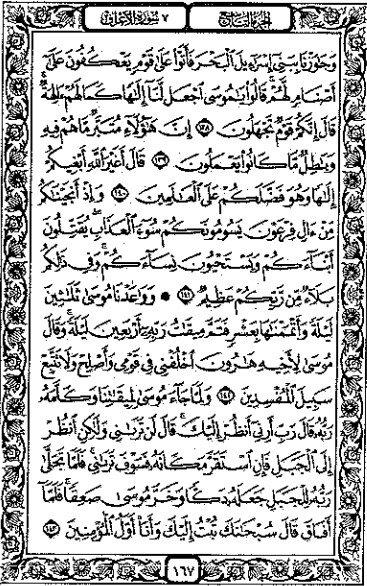 الجزء التاسع ٧ سورة الأعراف
وَجَٰوَزْنَا بِبَنِىٓ إِسْرَٰٓءِيلَ ٱلْبَحْرَ فَأَتَوْا۟ عَلَىٰ قَوْمٍ يَعْكُفُونَ عَلَىٰٓ
أَصْنَامٍ لَّهُمْ ۚ قَالُوا۟ يَٰمُوسَى ٱجْعَل لَّنَآ إِلَٰهًا كَمَا لَهُمْ ءَالِهَةٌ ۚ
قَالَ إِنَّكُمْ قَوْمٌ تَجْهَلُونَ ١٣٨ إِنَّ هَٰٓؤُلَآءِ مُتَبَّرٌ مَّا هُمْ فِيهِ
وَبَٰطِلٌ مَّا كَانُوا۟ يَعْمَلُونَ ١٣٩ قَالَ أَغَيْرَ ٱللَّهِ أَبْغِيكُمْ
إِلَٰهًا وَهُوَ فَضَّلَكُمْ عَلَى ٱلْعَٰلَمِينَ ١٤٠ وَإِذْ أَنجَيْنَٰكُم
مِّنْ ءَالِ فِرْعَوْنَ يَسُومُونَكُمْ سُوٓءَ ٱلْعَذَابِ ۖ يُقَتِّلُونَ
أَبْنَآءَكُمْ وَيَسْتَحْيُونَ نِسَآءَكُمْ ۚ وَفِى ذَٰلِكُم
بَلَآءٌ مِّن رَّبِّكُمْ عَظِيمٌ ١٤١ ۞ وَوَٰعَدْنَا مُوسَىٰ ثَلَٰثِينَ
لَيْلَةً وَأَتْمَمْنَٰهَا بِعَشْرٍ فَتَمَّ مِيقَٰتُ رَبِّهِۦٓ أَرْبَعِينَ لَيْلَةً ۚ وَقَالَ
مُوسَىٰ لِأَخِيهِ هَٰرُونَ ٱخْلُفْنِى فِى قَوْمِى وَأَصْلِحْ وَلَا تَتَّبِعْ
سَبِيلَ ٱلْمُفْسِدِينَ ١٤٢ وَلَمَّا جَآءَ مُوسَىٰ لِمِيقَٰتِنَا وَكَلَّمَهُۥ
رَبُّهُۥ قَالَ رَبِّ أَرِنِىٓ أَنظُرْ إِلَيْكَ ۚ قَالَ لَن تَرَىٰنِى وَلَٰكِنِ ٱنظُرْ
إِلَى ٱلْجَبَلِ فَإِنِ ٱسْتَقَرَّ مَكَانَهُۥ فَسَوْفَ تَرَىٰنِى ۚ فَلَمَّا تَجَلَّىٰ
رَبُّهُۥ لِلْجَبَلِ جَعَلَهُۥ دَكًّا وَخَرَّ مُوسَىٰ صَعِقًا ۚ فَلَمَّآ
أَفَاقَ قَالَ سُبْحَٰنَكَ تُبْتُ إِلَيْكَ وَأَنَا۠ أَوَّلُ ٱلْمُؤْمِنِينَ ١٤٣
١٦٧